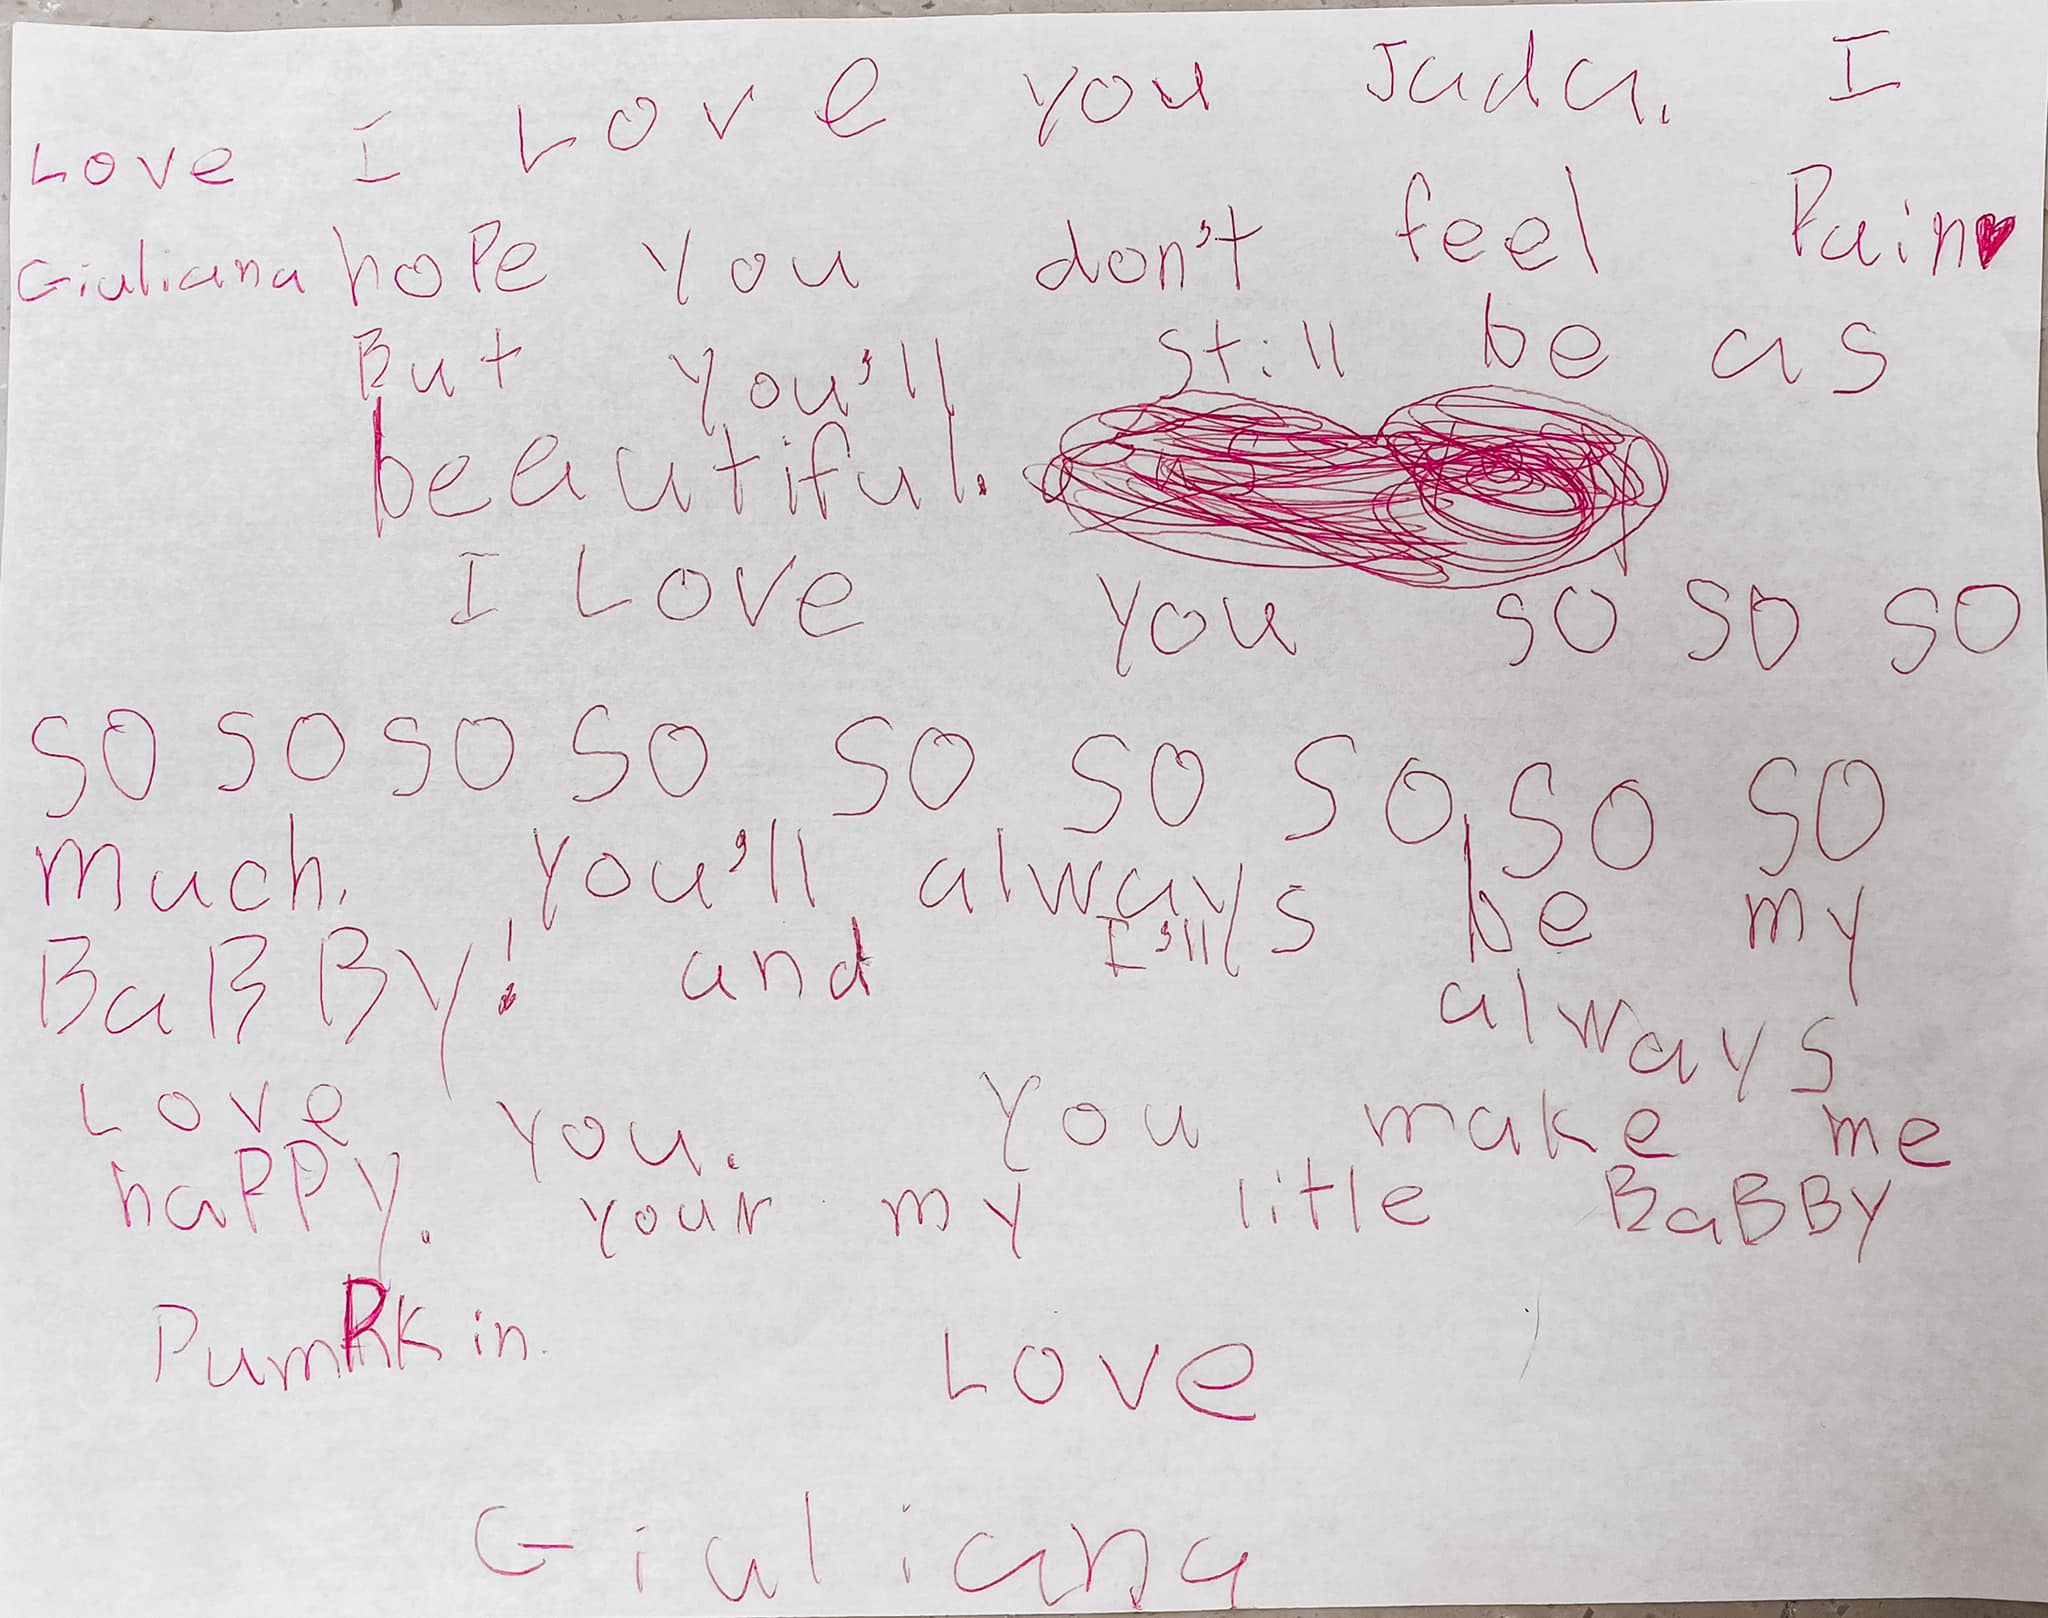 I Love you Jada. I
Love
Giuliana
hope you don't feel Pain♥
But you'll still be as
beautiful.
I Love you so so so
so so so so so so so so so
much. you'll always be my
BaBBy! and I'll always
Love you. you make me
happy. your my little BaBBy
Pumpkin.
Love
Giuliana